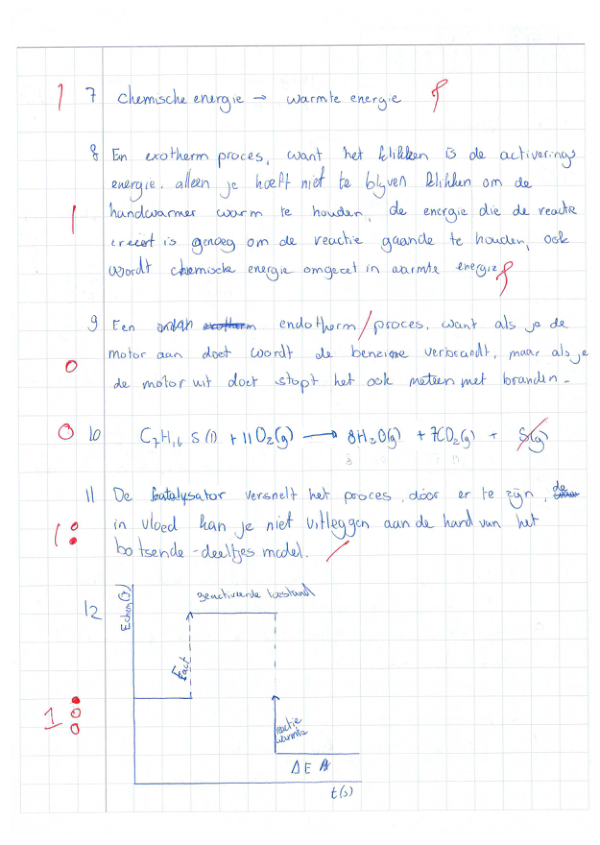 1 7 chemische energie → warmte energie
8 Een exotherm proces, want het klikken is de activerings
energie. alleen je hoeft niet te blyven klikken om de
1 handwarmer warm te houden, de energie die de reactie
creeert is genoeg om de reactie gaande te houden, ook
wordt chemische energie omgezet in warmte energie
9 Een endotherm proces, want als je de
motor aan doet wordt de benzine verbrandt, maar als je
0 de motor uit doet stopt het ook meteen met branden.
0 10 C₇H₁₆S (l) + 11O₂(g) → 8H₂O(g) + 7CO₂(g) + S(g)
11 De katalysator versnelt het proces, door er te zijn, de
1 in vloed kan je niet uitleggen aan de hand van het
botsende-deeltjes model.
12 Echem(J) geactiveerde toestand
Eact
1
reactie
warmte
ΔE
t(s)